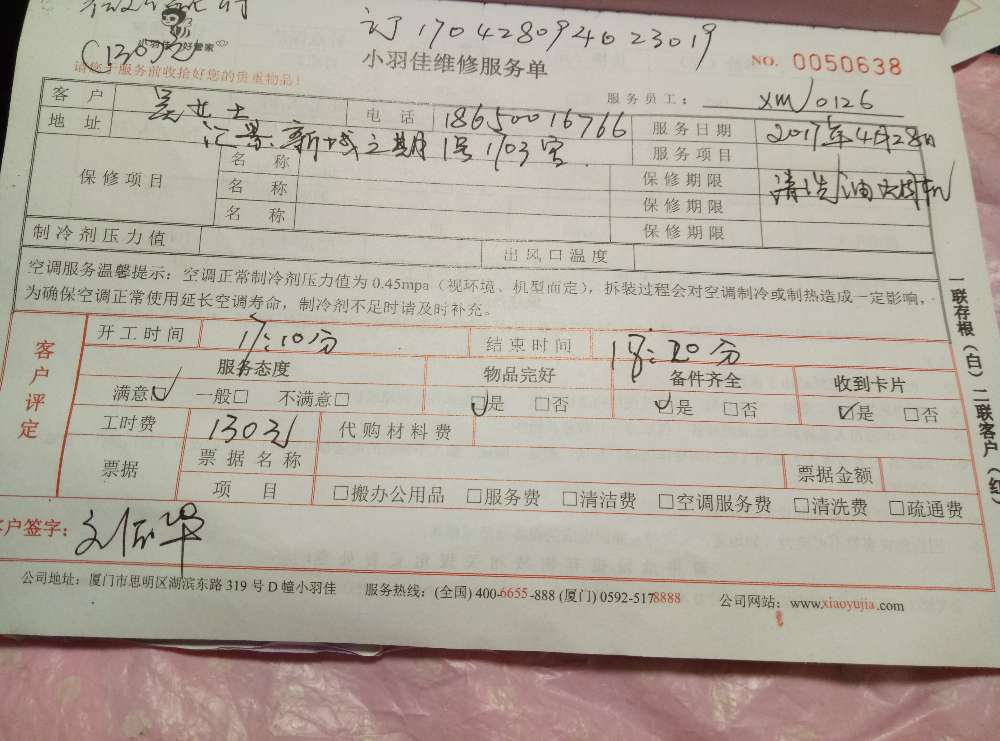 订 170428094023019
(130元)
小羽佳 好管家
请您于服务前收拾好您的贵重物品!
小羽佳维修服务单
NO. 0050638
服务员工: xm/0126
客户 吴女士 电话 18650016766 服务日期 2017年4月28日
地址 汇景新城之期1号1703室 服务项目 清洗油烟机
保修项目 名称 保修期限
名称 保修期限
名称 保修期限
制冷剂压力值 出风口温度
空调服务温馨提示:空调正常制冷剂压力值为 0.45mpa(视环境、机型而定),拆装过程会对空调制冷或制热造成一定影响,
为确保空调正常使用延长空调寿命,制冷剂不足时请及时补充。
客户评定
开工时间 17:10分 结束时间 18:20分
服务态度 物品完好 备件齐全 收到卡片
满意☑ 一般□ 不满意□ ☑是 □否 ☑是 □否 ☑是 □否
工时费 130元 代购材料费
票据 票据名称 票据金额
项目 □搬办公用品 □服务费 □清洁费 □空调服务费 □清洗费 □疏通费
客户签字:
公司地址:厦门市思明区湖滨东路 319 号 D 幢小羽佳 服务热线:(全国) 400-6655-888 (厦门) 0592-5178888 公司网站:www.xiaoyujia.com
一联存根(白)二联客户(红)